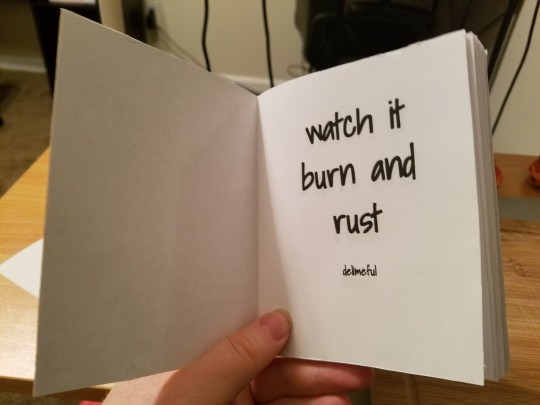 watch it
burn and
rust
delimeful